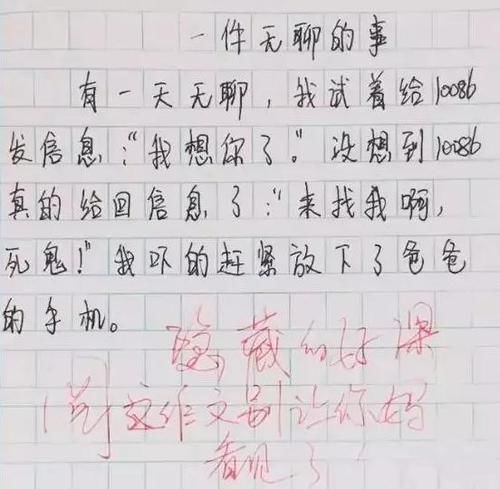 一件无聊的事
有一天无聊，我试着给10086
发信息："我想你了。"没想到10086
真的给回信息了："来找我啊，
死鬼！"我吓的赶紧放下了爸爸
的手机。
隐藏的好深
这作文别让你妈
看见了